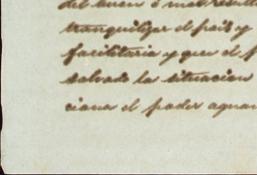 del buen o mal result
tranquilizar el pais y
facilitaria y que el p
salvado la situacion
ciona el poder aguan